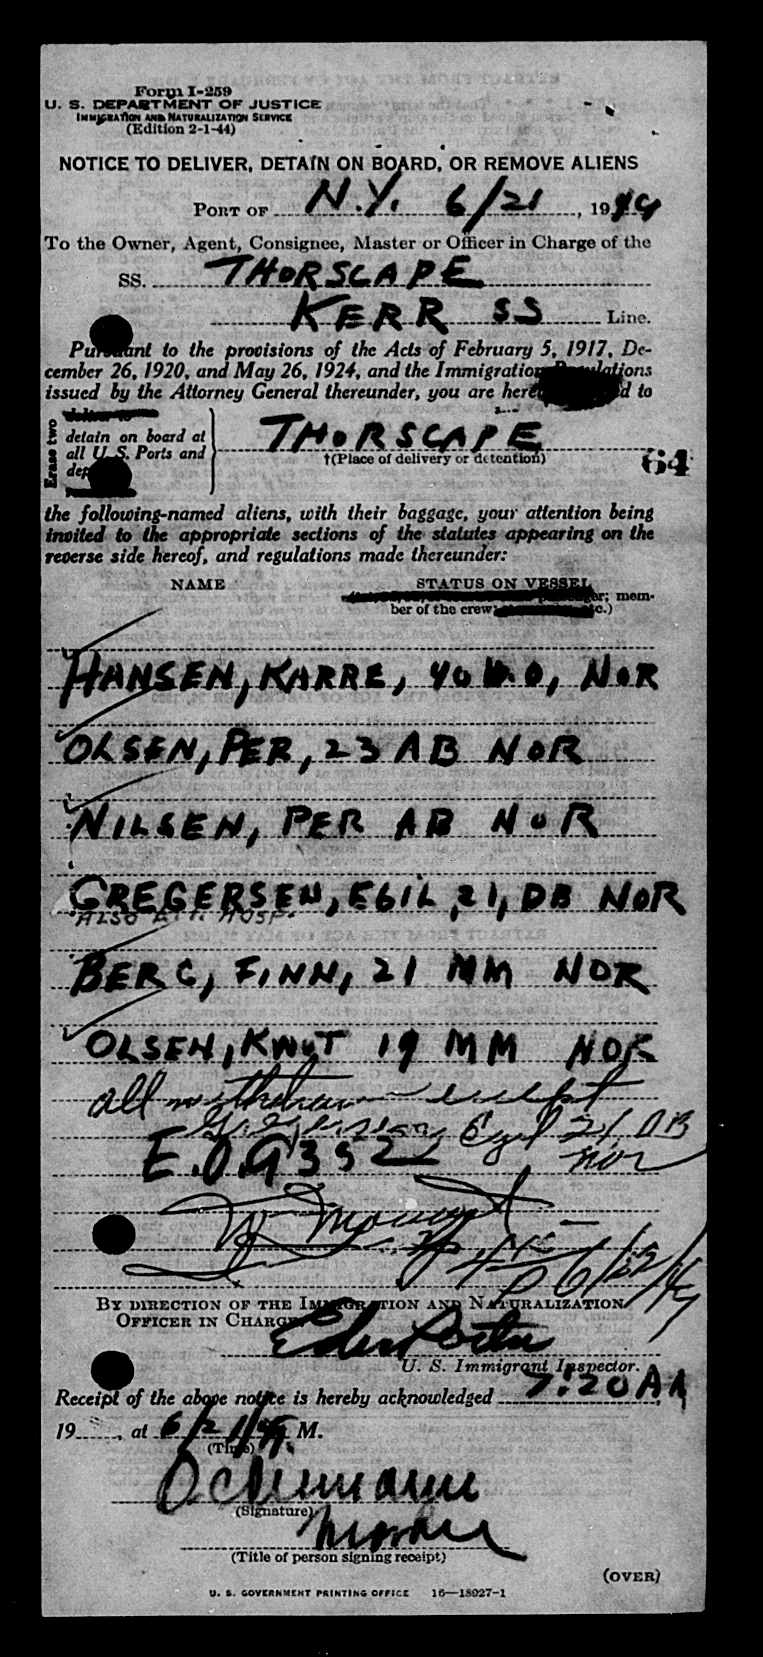 Form I-259
U. S. DEPARTMENT OF JUSTICE
IMMIGRATION AND NATURALIZATION SERVICE
(Edition 2-1-44)
NOTICE TO DELIVER, DETAIN ON BOARD, OR REMOVE ALIENS
PORT OF N.Y. 6/21, 19
To the Owner, Agent, Consignee, Master or Officer in Charge of the
SS. THORSCAPE
KERR SS Line.
Pursuant to the provisions of the Acts of February 5, 1917, De-
cember 26, 1920, and May 26, 1924, and the Immigration Regulations
issued by the Attorney General thereunder, you are d to
Erase two
detain on board at
all U. S. Ports and
THORSCAPE
†(Place of delivery or detention)
64
the following-named aliens, with their baggage, your attention being
invited to the appropriate sections of the statutes appearing on the
reverse side hereof, and regulations made thereunder:
NAME STATUS ON VESSEL
mem-
ber of the crew;
HANSEN, KARRE, 40 NOR
OLSEN, PER, 23 AB NOR
NILSEN, PER AB NOR
GREGERSEN, EGIL, 21, DB NOR
ALSO HOSP.
BERG, FINN, 21 MM NOR
OLSEN, KNUT 19 MM NOR
all withdrawn except
Gregersen, Egil 21 DB
E.O. 9352 nor
BY DIRECTION OF THE IMMIGRATION AND NATURALIZATION
OFFICER IN CHARGE
U. S. Immigrant Inspector.
Receipt of the above notice is hereby acknowledged 7:20 AM
19, at 6/21/49 M.
(Time)
(Signature)
(Title of person signing receipt)
(OVER)
U. S. GOVERNMENT PRINTING OFFICE 16—18927-1